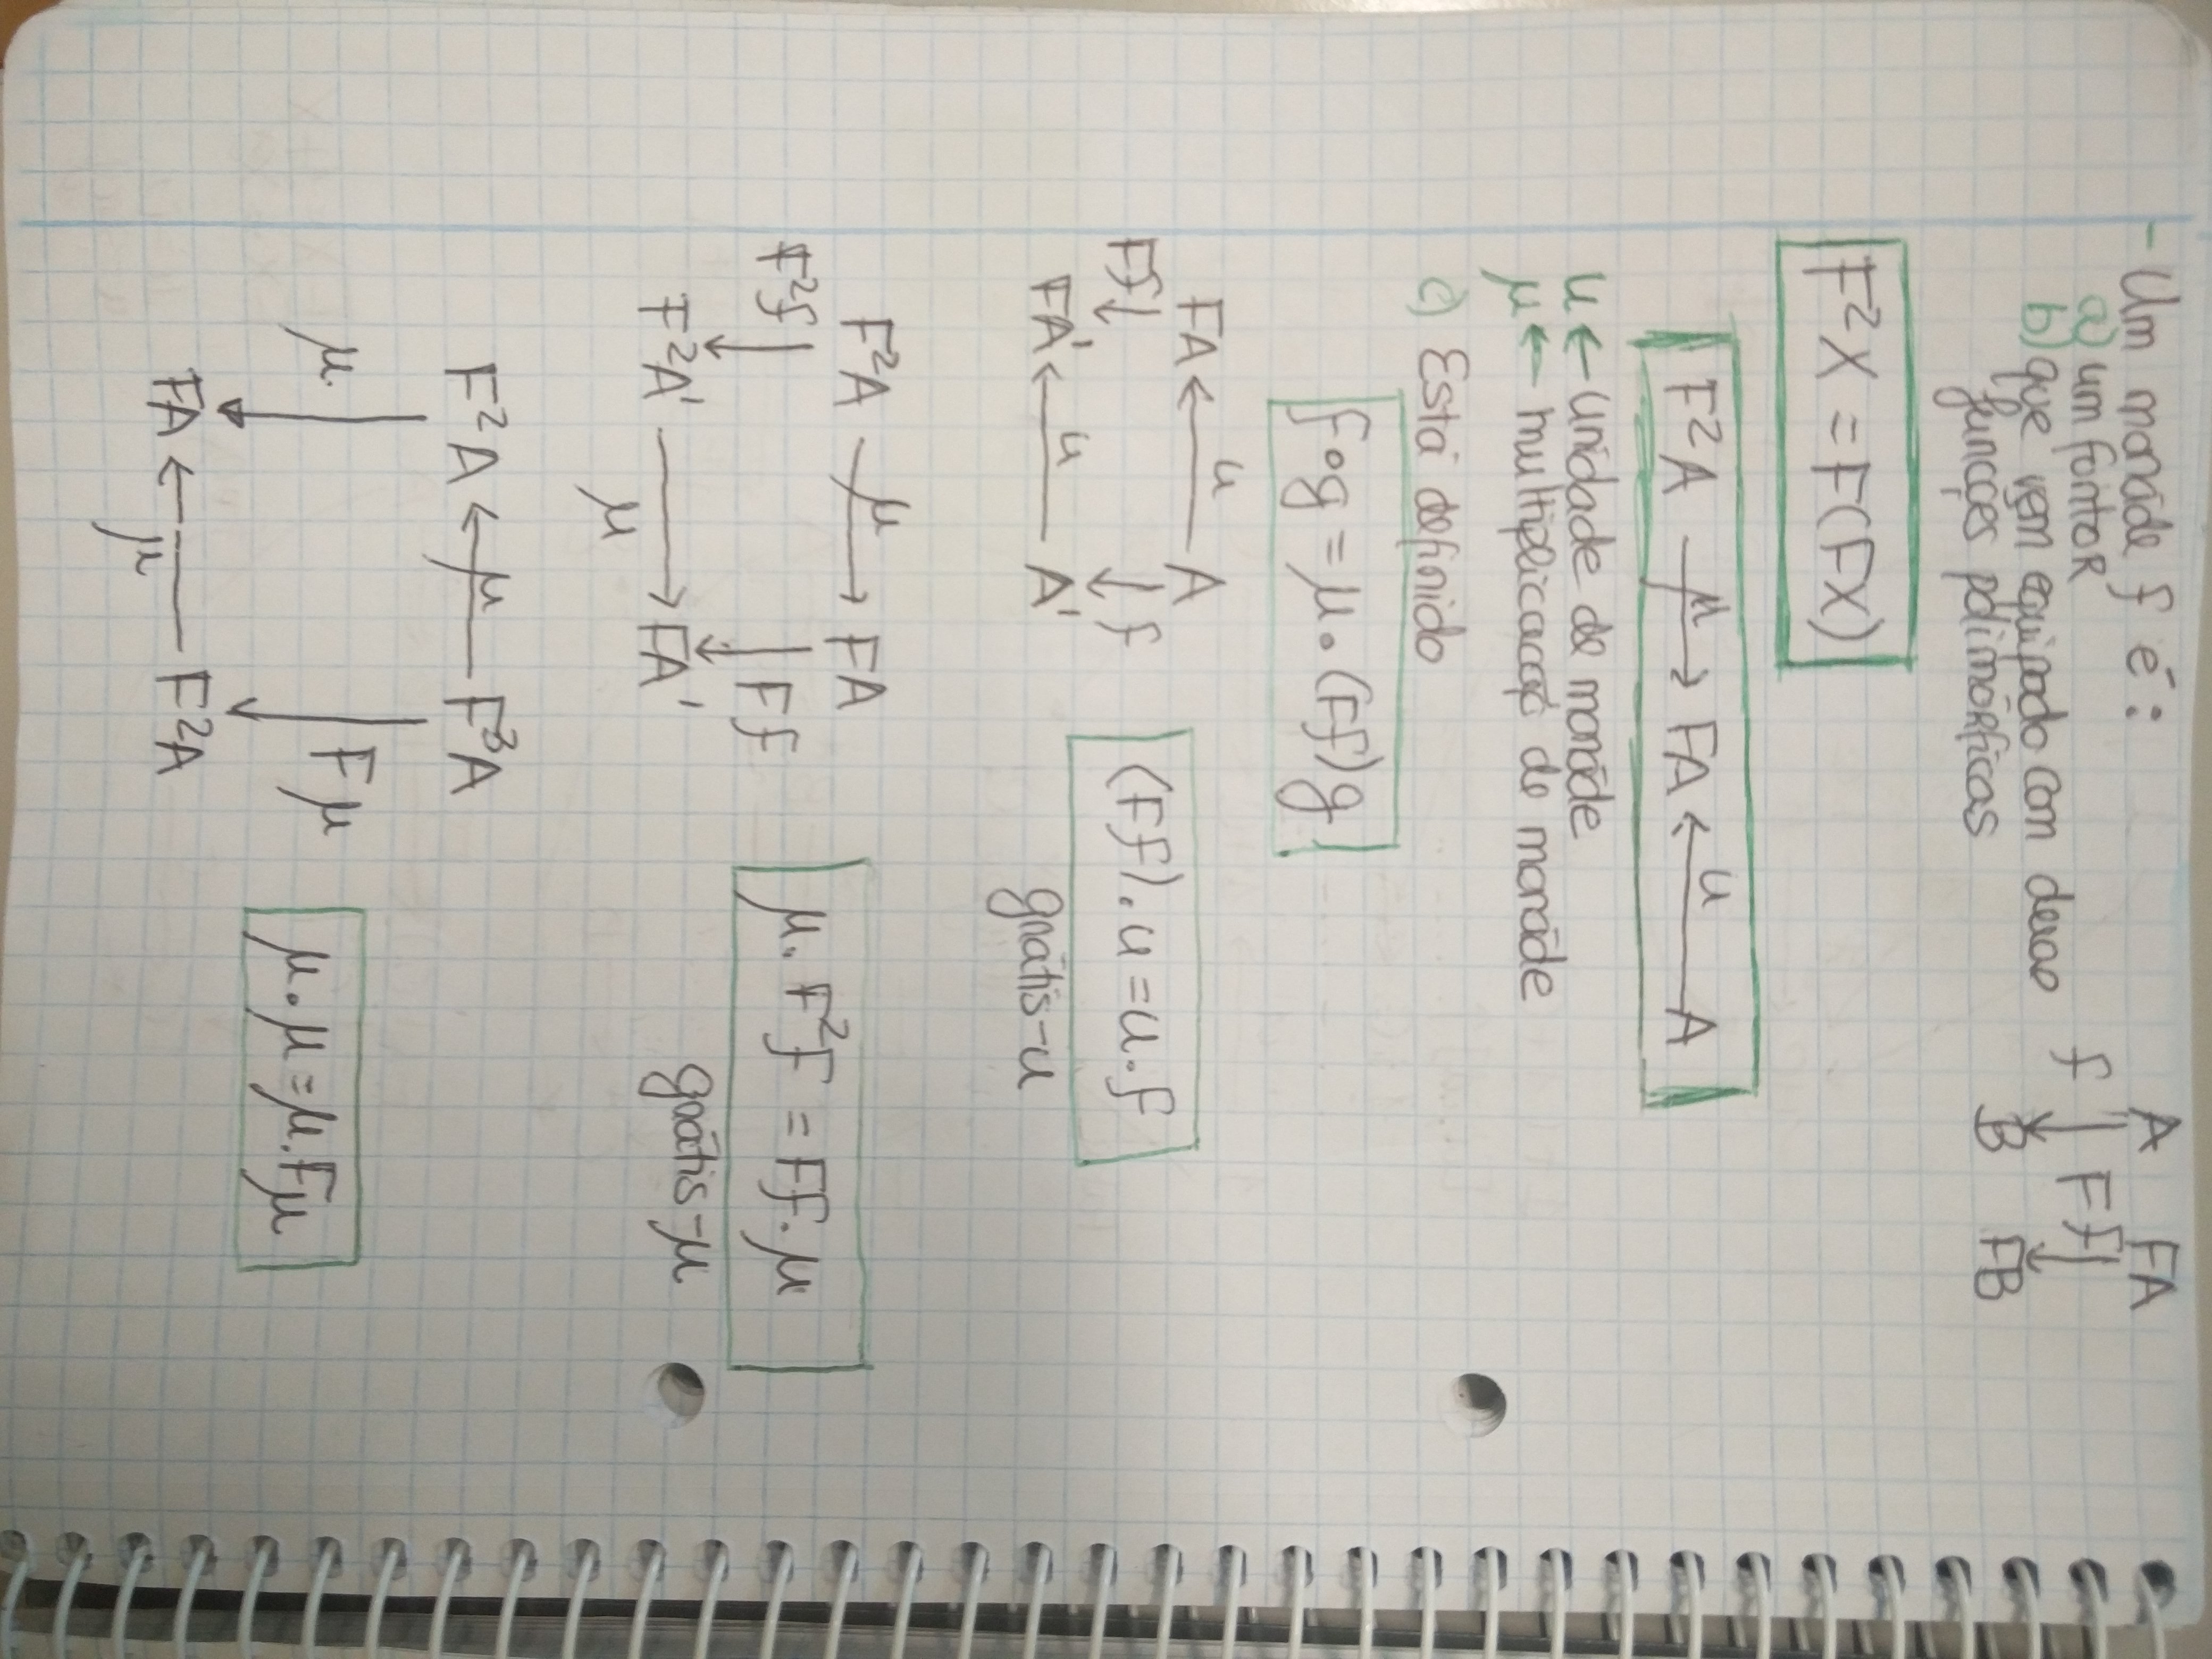 - Um monade f é:
a) um fontor
b) que vem equipado com duas
funcções polimórficas
A FA
f Ff
B FB
F²X = F(FX)
F²A μ FA u A
u ← unidade de monade
μ ← multiplicacaç de monade
c) Está definido
f•g = μ•(Ff)g
FA u A
Ff f
FA' u A'
(Ff).u = u.f
grátis-u
F²A μ FA
F²f Ff
F²A' μ FA'
μ. F²f = Ff. μ
grátis-μ
F²A μ F³A
μ. Fμ
FA μ F²A
μ.μ = μ.Fμ